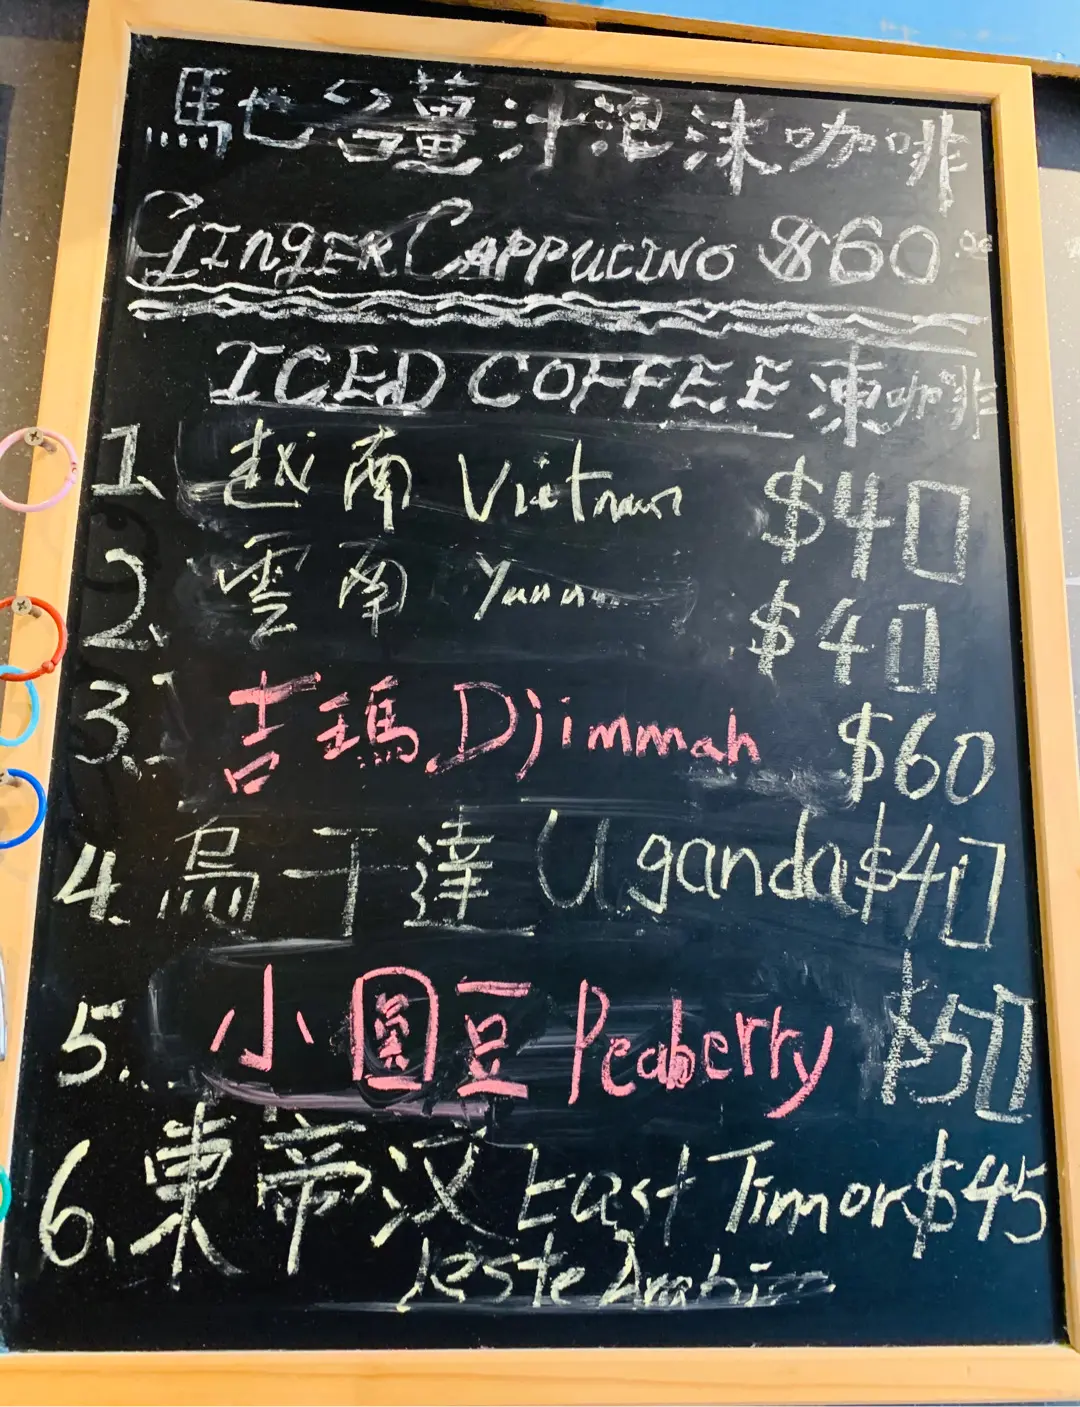 馳名薑汁泡沫咖啡
GINGER CAPPUCINO $60
ICED COFFEE 凍咖啡
1. 越南 Vietnam $40
2. 雲南 Yunnan $40
3. 吉瑪 Djimmah $60
4. 烏干達 Uganda $40
5. 小圓豆 Peaberry $50
6. 東帝汶 East Timor $45
leste Arabi